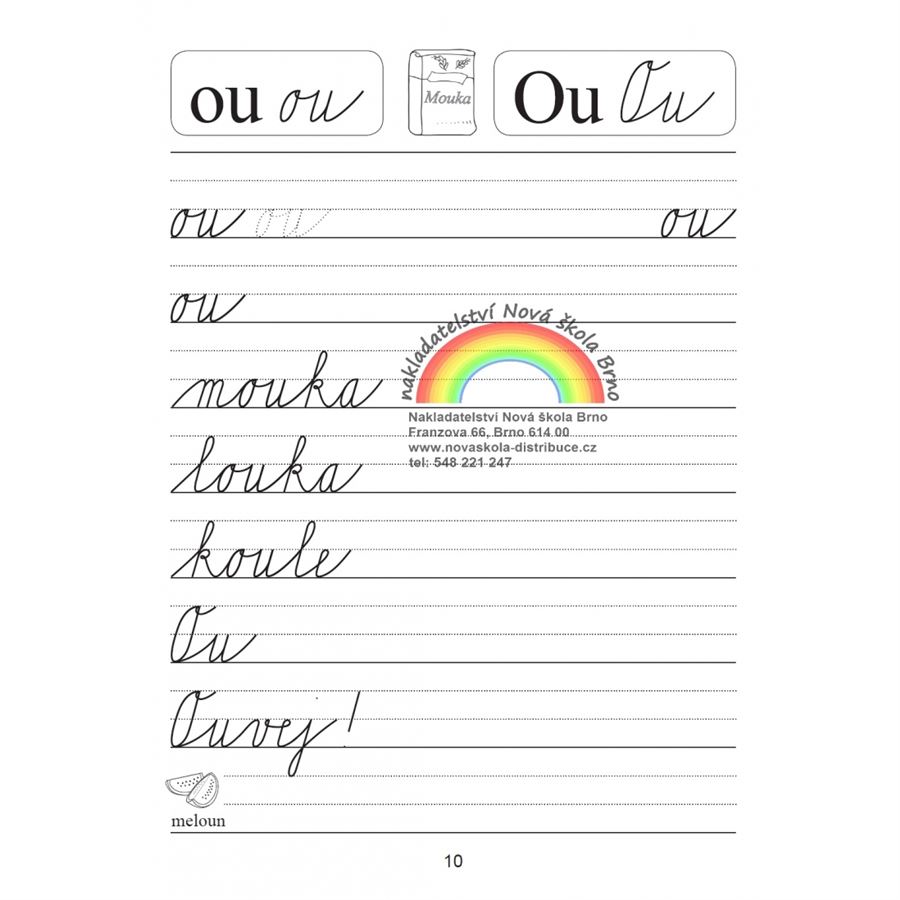 ou ou Mouka Ou Ou
ou ou ou
ou
nakladatelství Nová škola Brno
mouka
Nakladatelství Nová škola Brno
Franzova 66, Brno 614 00
www.novaskola-distribuce.cz
tel: 548 221 247
louka
koule
Ou
Ouvej!
meloun
10